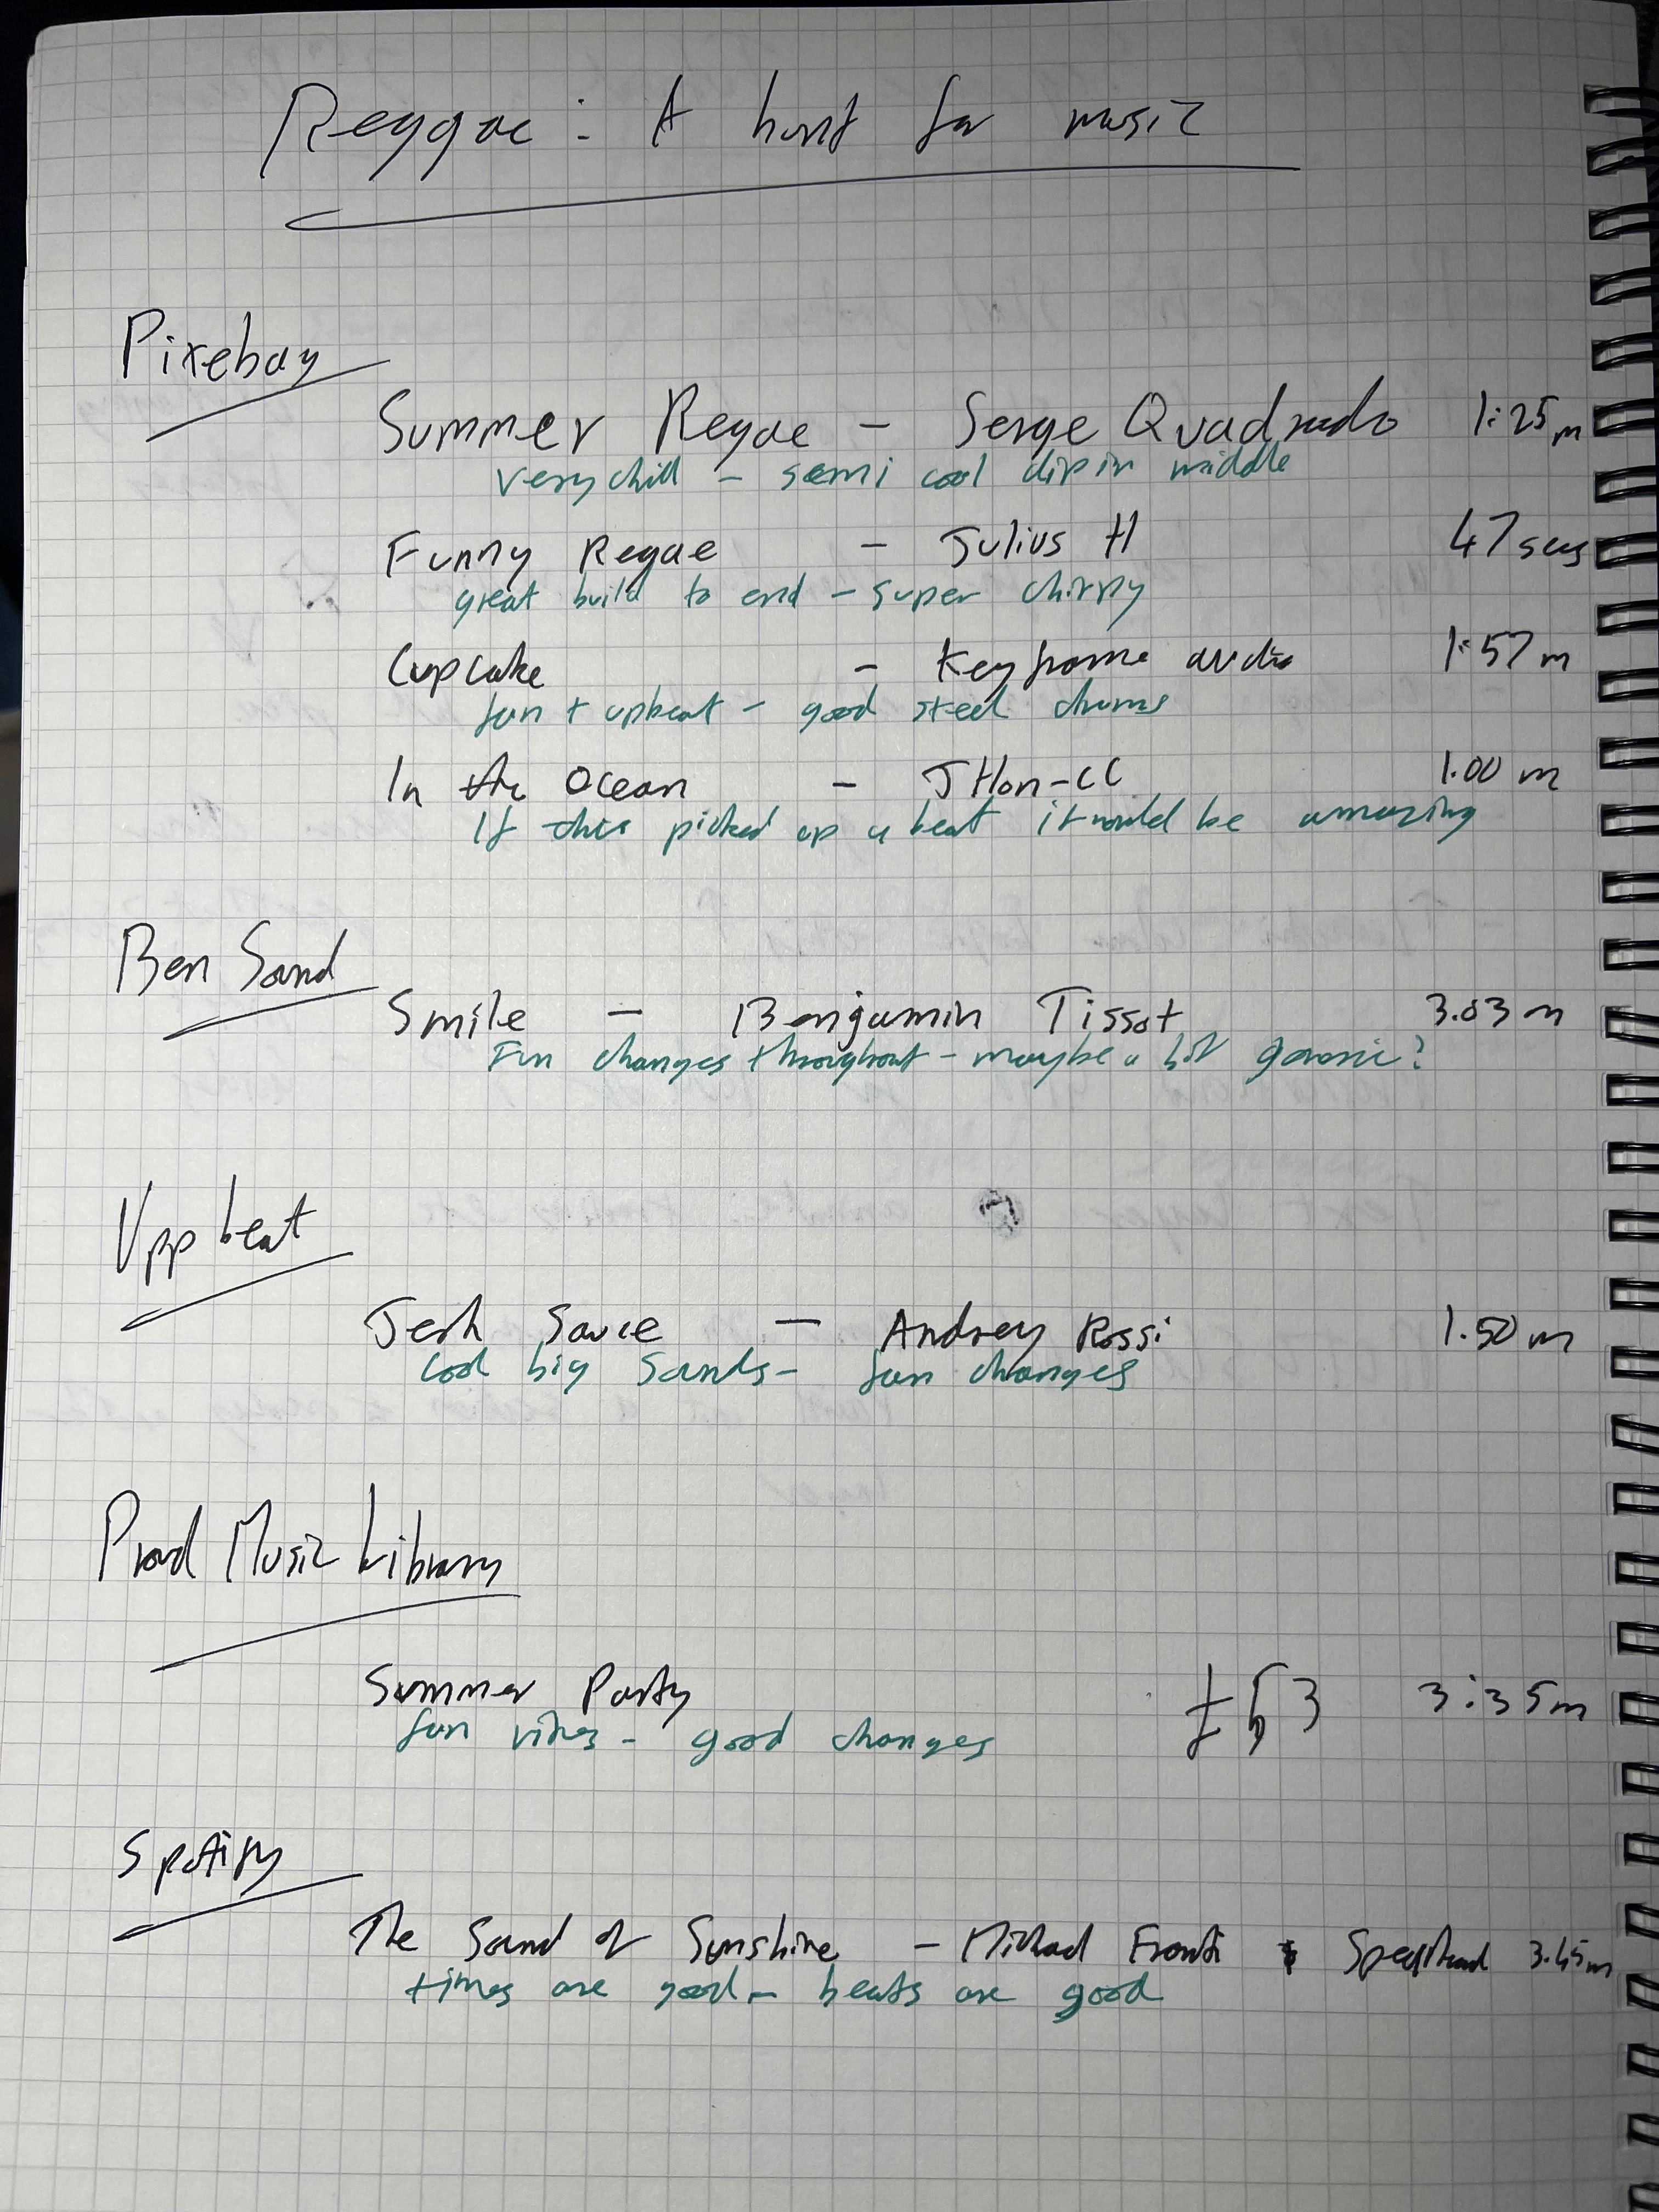 Reggae : A hunt for music
Pixebay
Summer Regae - Serge Quadrado 1:25m
very chill - semi cool dip in middle
Funny Regae - Julius H 47 secs
great build to end - super chirpy
Cupcake - Keyframe audio 1:57m
fun + upbeat - good steel drums
In the Ocean - JHon-CC 1.00 m
If this picked up a beat it would be amazing
Ben Sound
Smile - Benjamin Tissot 3.03m
Fun changes throughout - maybe a bit generic?
Uppbeat
Jerk Sauce - Andrey Rossi 1.50m
Cool big Sounds - fun changes
Prod Music Library
Summer Party £63 3:35m
fun vibes - good changes
Spotify
The Sound of Sunshine - Michael Franti & Spearhead 3.45m
times are good - beats are good